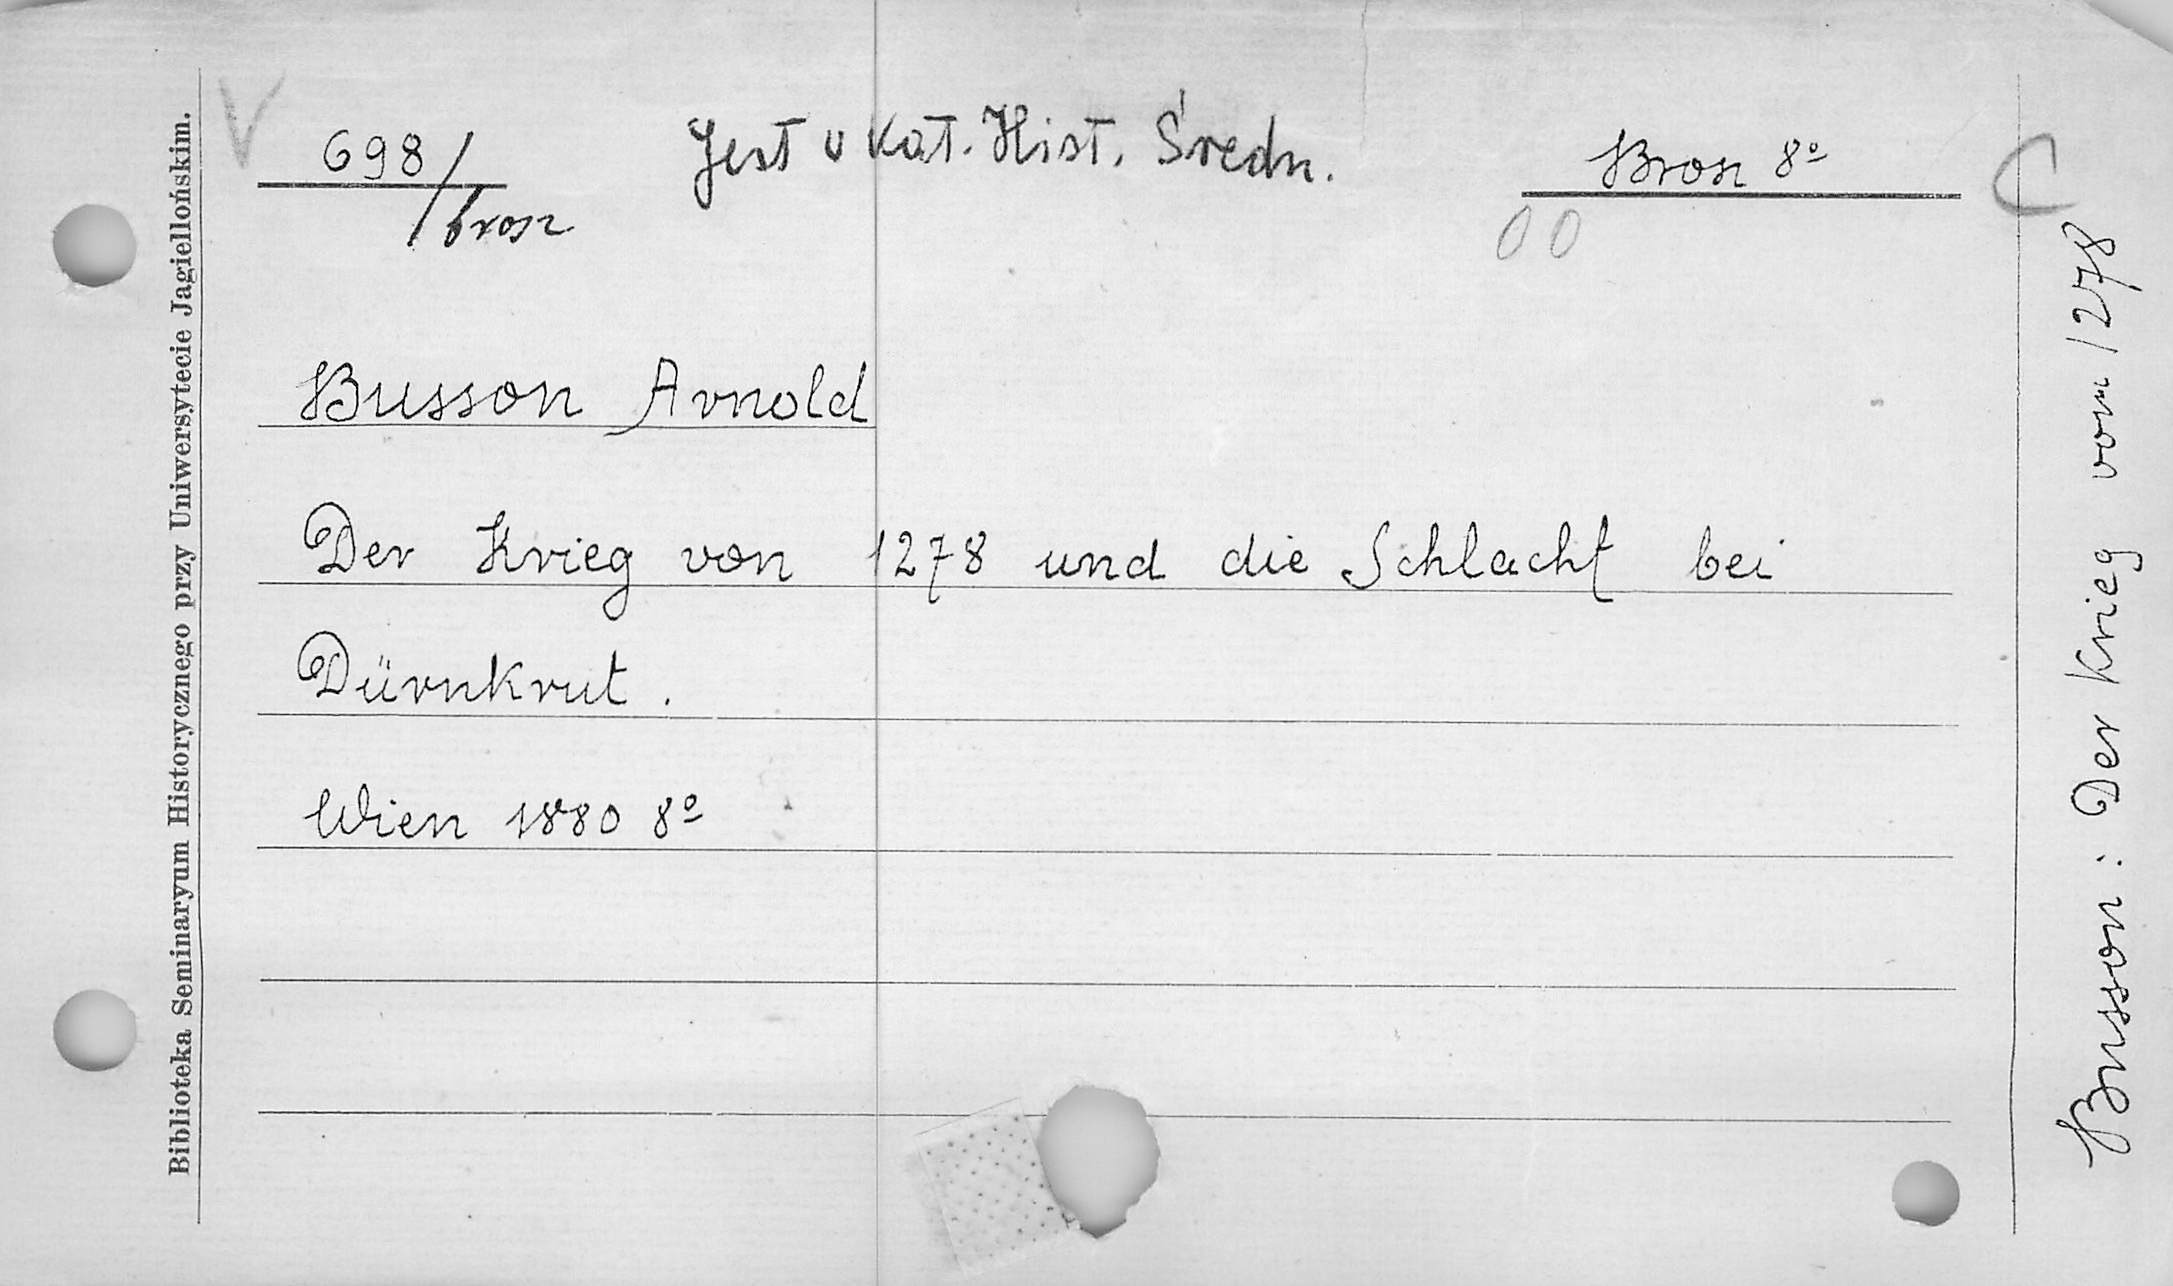 V
698/brosz
Jest v Kat. Hist. Średn.
Brosz 8º
C
00
Busson Arnold
Der Krieg von 1278 und die Schlacht bei
Dürnkrut.
Wien 1880 8º
Biblioteka Seminaryum Historycznego przy Uniwersytecie Jagiellońskim.
Busson: Der Krieg vom 1278